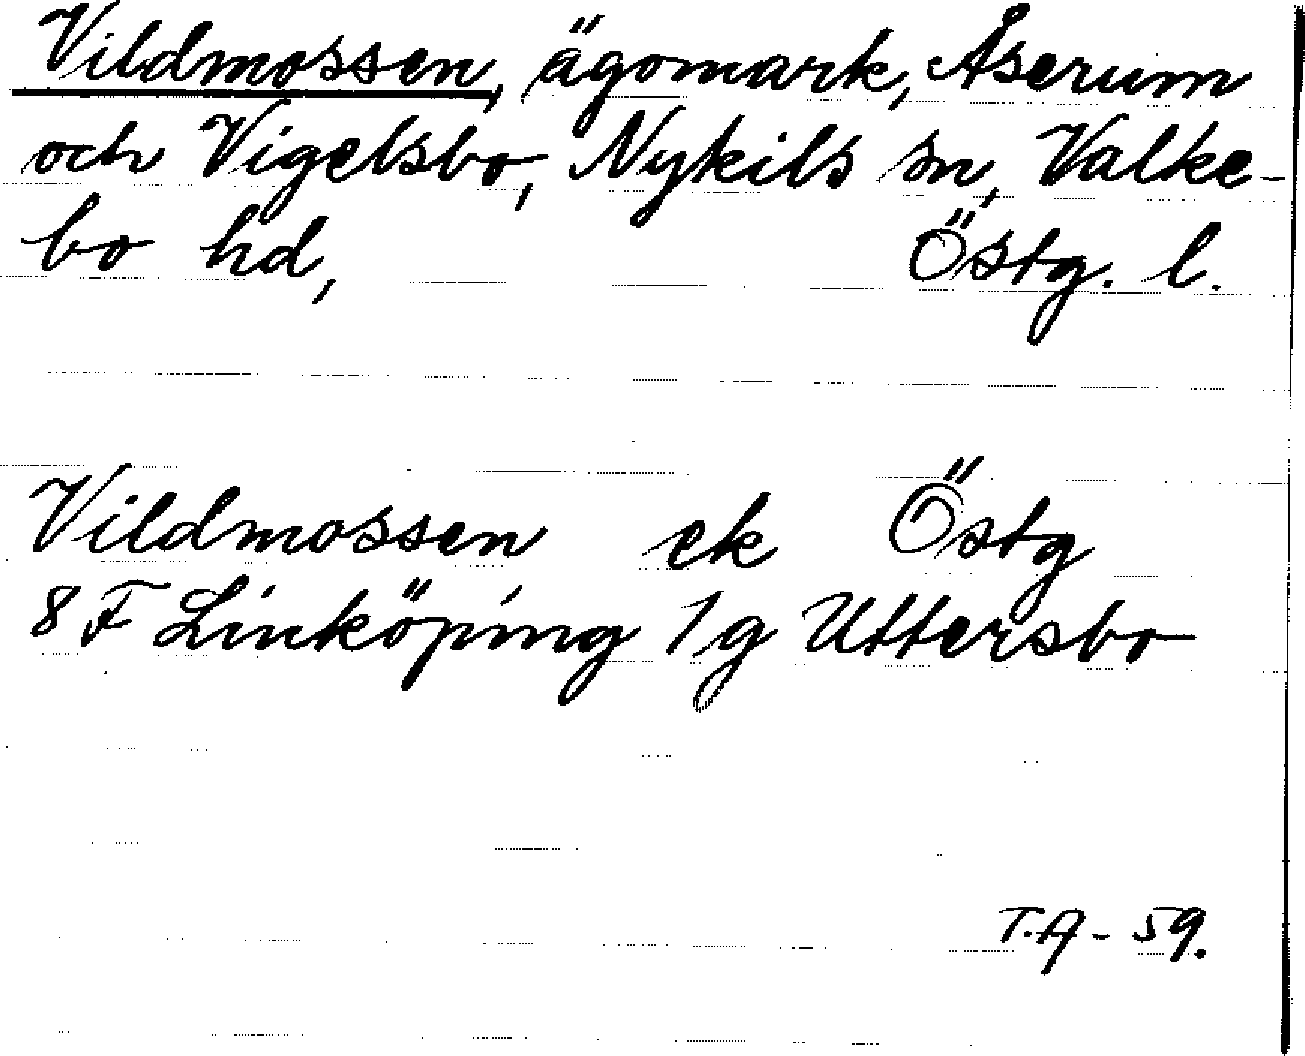 Vildmossen, ägomark, Åserum
och Vigelsbo, Nykils sn, Valke-
bo hd, Östg. l.
Vildmossen ek Östg
8 F Linköping 1 g Uttersbo
T.A - 59.